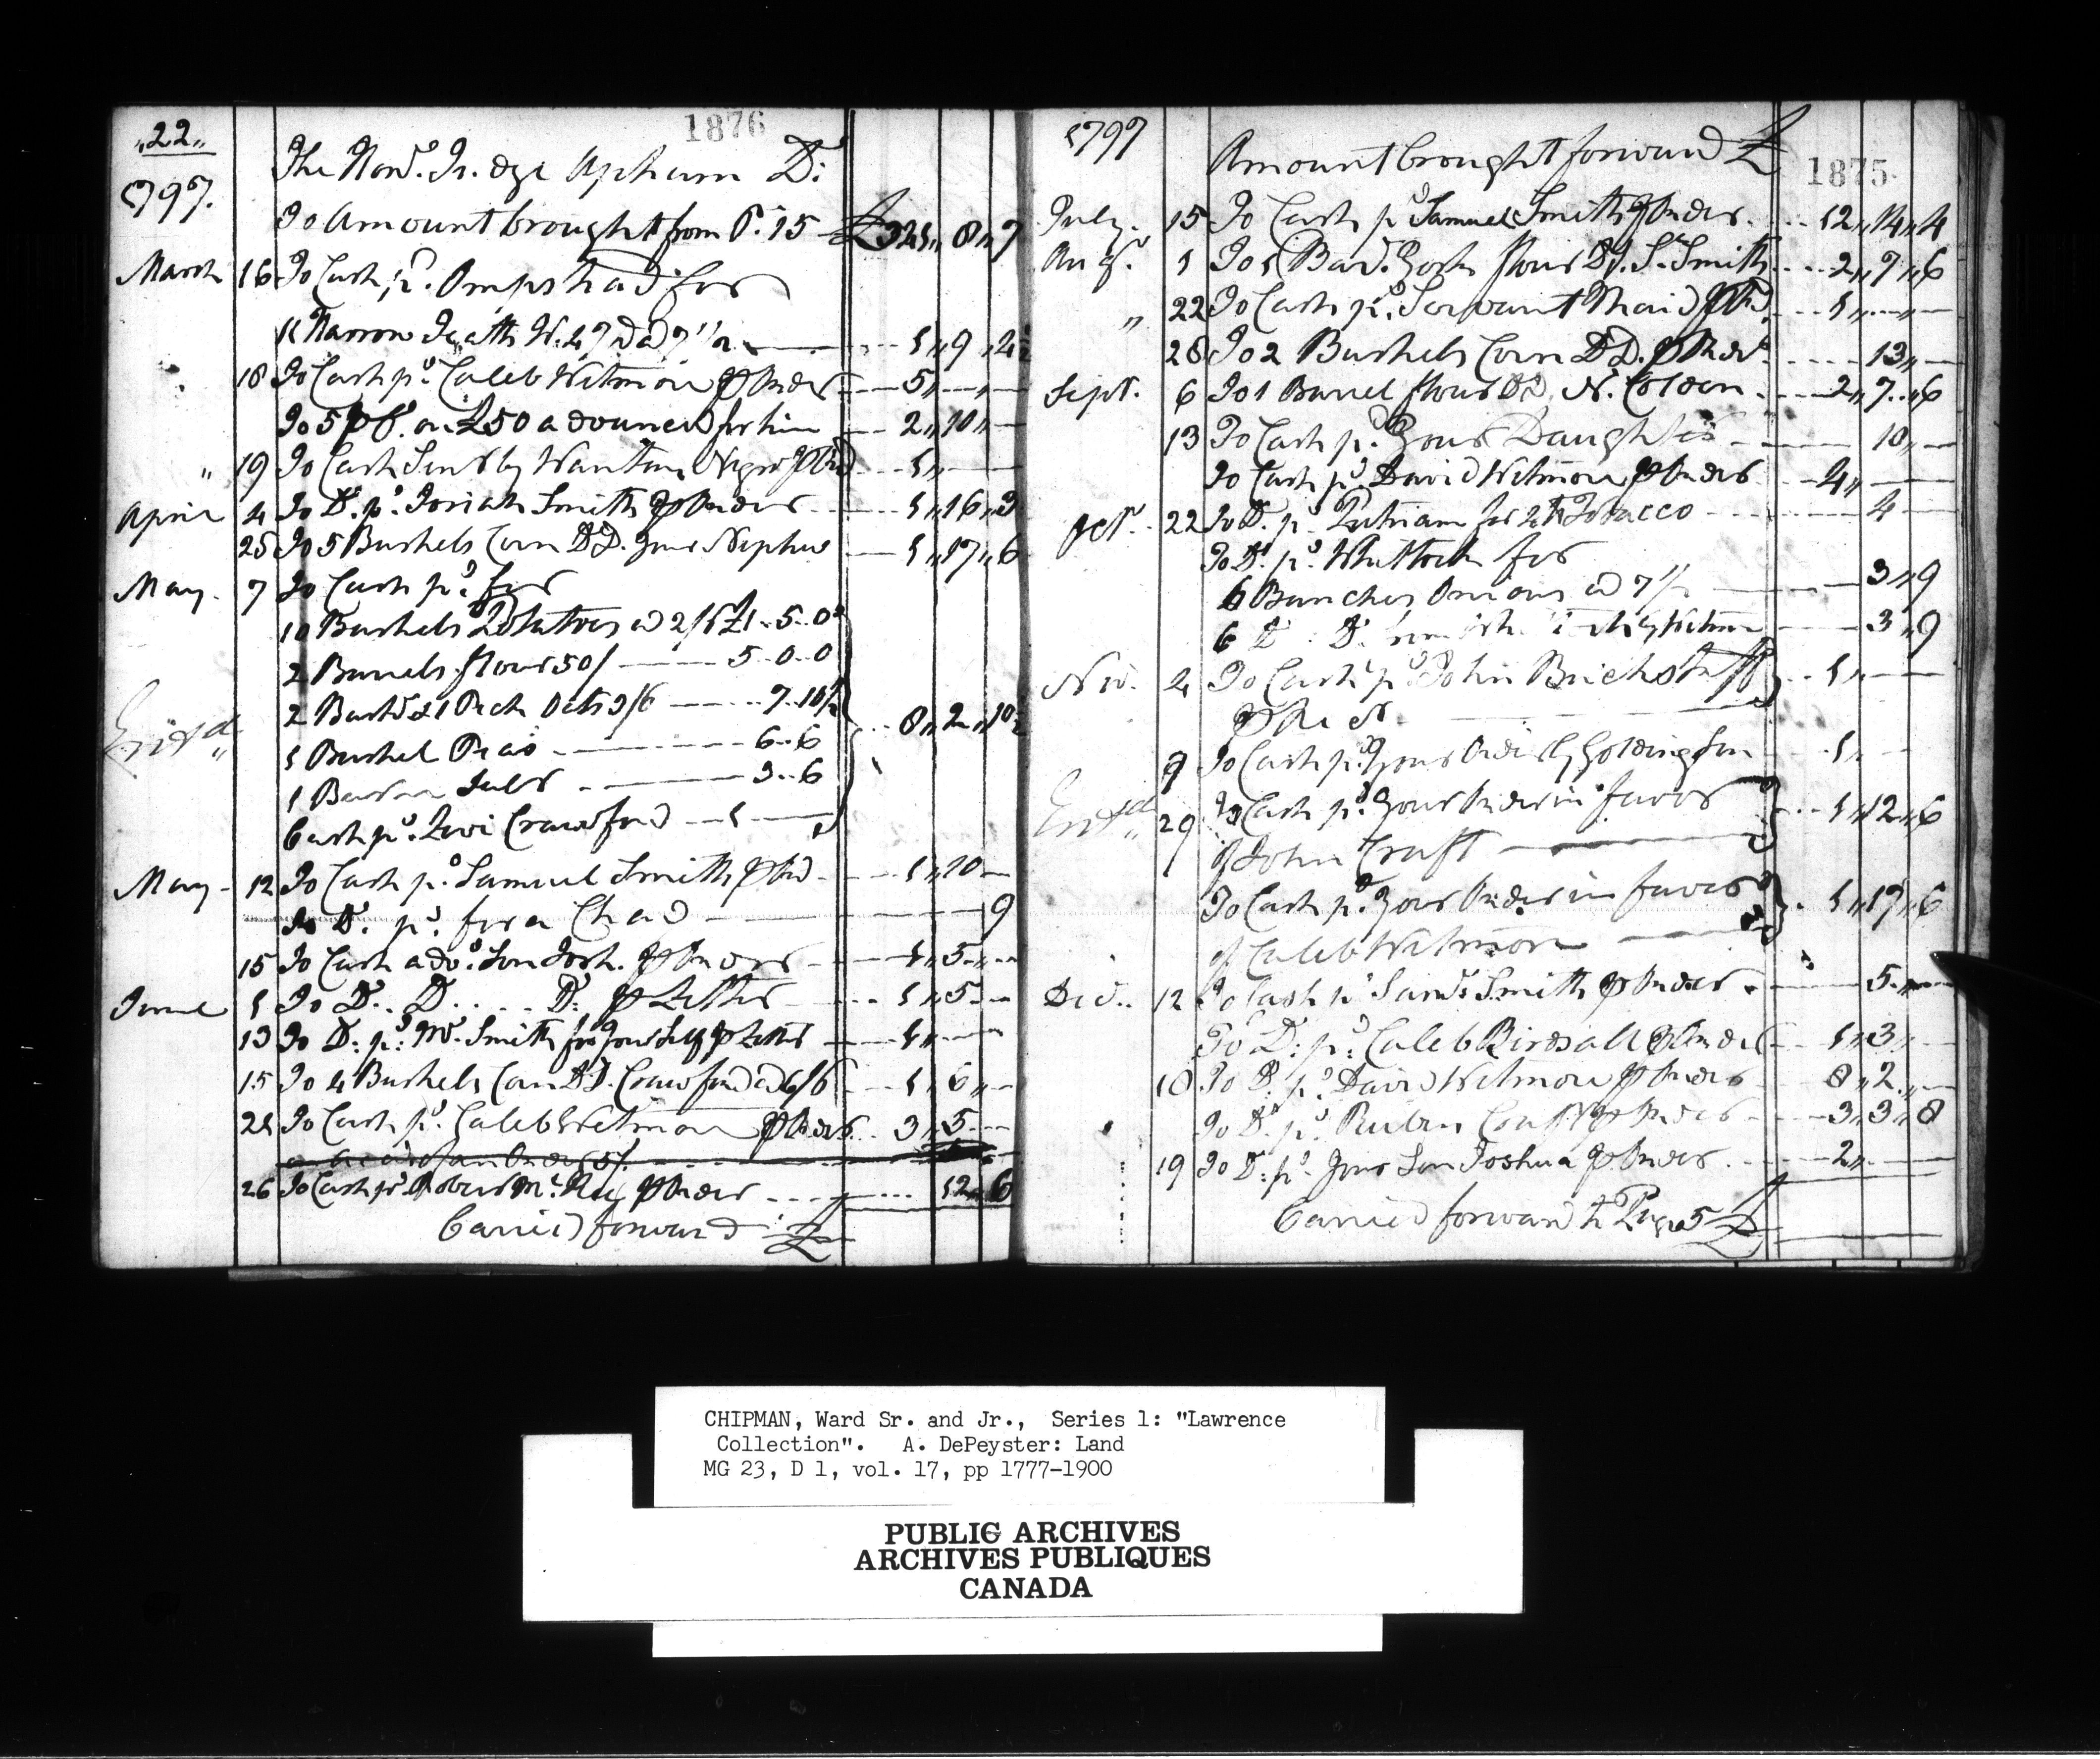 „22„
1876
The Hon.d Judge Upham Dr.
1797.
To Amount brought from P. 15 £321„ 8„ 7
March 16 To Cash p.d Ompstead for
11 Narrow W. 47 @ 7½ 1„ 9„ 4½
18 To Cash p.d Caleb Wetmore ⅌ Order 5„
To 5 ⅌ C. on £50 advanced for him 2„ 10„
„ 19 To Cash Sent by Negro ⅌ Ord 1„
April 4 To D.o p.d Josiah Smith ⅌ Order 1„ 16„ 3
25 To 5 Bushels Corn DD. your Nephew 1„ 17„ 6
May 7 To Cash p.d for
10 Bushels Potatoes @ 2/6 £1..5..0
2 Barrels flour 50/ 5..0..0
2 Bush.s & 1 Peck Oats 3/6 7..10½
Ent.d
1 Bushel Peas 6..6
8„ 2„ 10½
1 3..6
Cash p.d Levi Crawford 1
May 12 To Cash p.d Samuel Smith ⅌ Ord 1„ 10
To D.o p.d for a Chad 9
15 To Cash adv.d Son Josh. ⅌ Order 1„ 5„
June 1 To D.o D.o D.o ⅌ Letter 1„ 5
13 To D.o p.d Mr. Smith for your Self ⅌ Letter 1„
15 To 4 Bushels Corn DD. Crawford @ 6/6 1„ 6„
21 To Cash p.d Caleb Wetmore ⅌ Order 3„ 5
26 To Cash p.d Robert Mc. ⅌ Order 12„ 6
Carried forward £
1797
Amount brought forward £
1875
July 15 To Cash p.d Samuel Smith ⅌ Order 12„ 14„ 4
Aug.t 1 To 1 Bar.l York flour DD. S. Smith 2„ 7„ 6
„ 22 To Cash p.d Servant Maid ⅌ Ord 1„
28 To 2 Bushels Corn DD. ⅌ Order 13„
Sept. 6 To 1 Barrel flour DD. N. Colden 2„ 7„ 6
13 To Cash p.d Your Daughter 10„
To Cash p.d David Wetmore ⅌ Order 4„
Oct. 22 To D.o p.d Putnam for 2 lb Tobacco 4
To D.o p.d Whittock for
6 Bunches Onions @ 7½ 3„ 9
6 D.o D.o Wetmore 3„ 9
Nov. 2 To Cash p.d John 1„
⅌ Order
9 To Cash p.d Your Order by Golding Son 1„
Ent.d 29 To Cash p.d Your Order in favor 1„ 12„ 6
of John Craft
To Cash p.d Your Order in favor 1„ 17„ 6
of Caleb Wetmore
Dec. 12 To Cash p.d Sam.l Smith ⅌ Order 5„
To D.o p.d Caleb Birdsall ⅌ Order 1„ 3„
18 To D.o p.d David Wetmore ⅌ Order 8„ 2„
To D.o p.d Reuben Craft ⅌ Order 3„ 3„ 8
19 To D.o p.d Your Son Joshua ⅌ Order 2„
Carried forward to Page 5 £
CHIPMAN, Ward Sr. and Jr., Series 1: "Lawrence
Collection". A. DePeyster: Land
MG 23, D 1, vol. 17, pp 1777-1900
PUBLIC ARCHIVES
ARCHIVES PUBLIQUES
CANADA